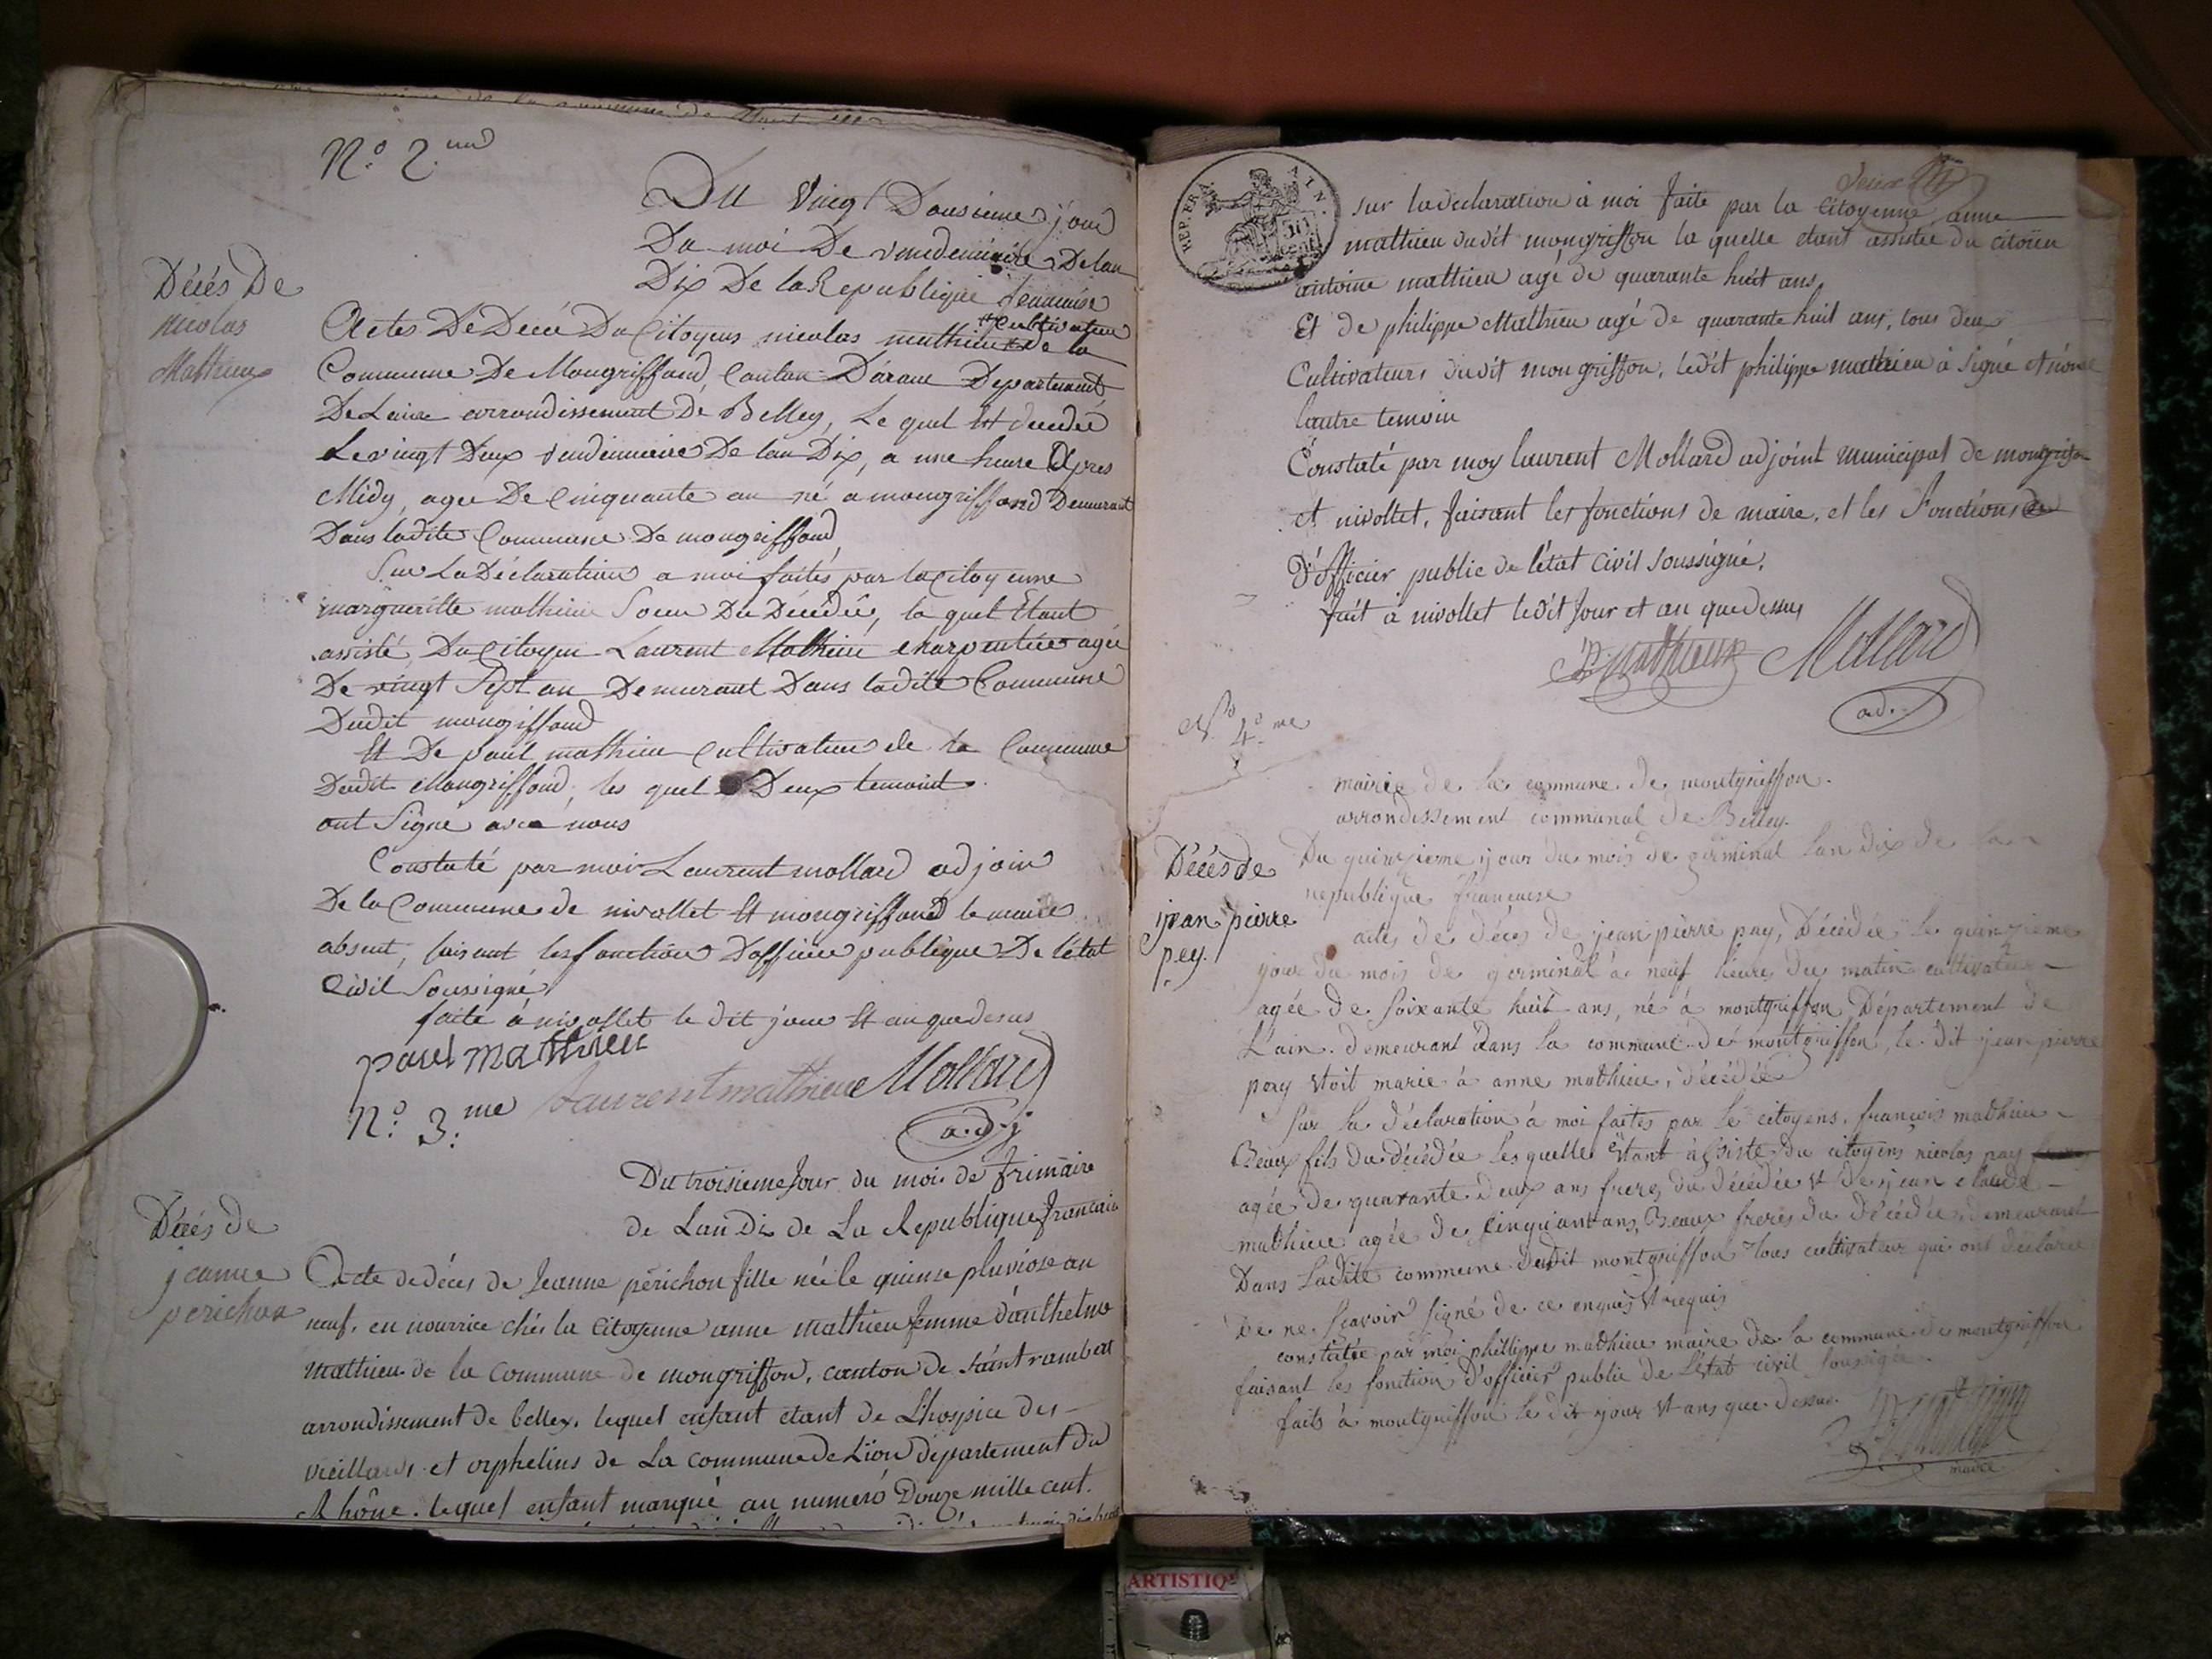 N.o 2.me
Du vingt Dousieme jour
Du moi De vendemiaire De lan
Dix De la Republique francaise
Décés De
nicolas
Mathieu
Actes De Décé Du Citoyens nicolas mathieu cultivateur De la
Commune De Mongriffond, Canton Darane Departement
De Laine arrondissement de Belley, Le quel Et decedée
Le vingt Deux vendemiaire De lan Dix, a une heure Apres
Midy, agee De Cinquante an né a mongriffond Demurant
Dans ladite Commune De mongriffond
Sur La Déclaration a moi faités par la Citoyenne
margueritte mathieu Soeur Du Décédée, la quel Etant
assisté Du Citoyen Laurent Mathieu charpentier agée
De vingt Sept an Demurant Dans ladite Commune
Dudit mongriffond
Et De paul mathieu Cultivateur de la Commune
Dudit Mongriffond, les quel Deux temoint
ont Signe avec nous
Constaté par moi Laurent mollard adjoin
De la Commune de nivollet Et mongriffond le maire
absent, faisant les fonction Dofficier publique De létat
Civil Soussigné
faite a nivollet le dit jour Et an que desus
paul mathieu
Laurent mathieu Mollard
a.d.j
N.o 3.me
Du troisieme Jour du mois de frimaire
de Lan Dix de La Republique francaise
Décés de
jeanne
perichon
Acte de décés de Jeanne périchon fille née le quinse pluviose an
neuf, en nourrice chés la Citoyenne anne mathieu femme d'anthelme
mathieu de la Commune de mongriffon, canton de saint rambert
arrondissement de belley, lequel enfant etant de L'hospice des
vieillards et orphelins de La Commune de Lion département du
Rhône. lequel enfant marqué au numéro Douze mille cent.
REP. FRA. AIN.
sur la declaration à moi faite par la Citoyenne anne
mathieu dudit mongriffon la quelle etant assistée du citoïen
antoine mathieu agé de quarante huit ans
Et de philippe Mathieu agé de quarante huit ans, tous deux
Cultivateurs dudit mongriffon, ledit philippe mathieu à signé et non
l'autre temoin
Constaté par moy laurent Mollard adjoint municipal de mongriffon
et nivollet, faisant les fonctions de maire, et les fonctions
D'officier public de l'état Civil soussigné,
fait à nivollet ledit Jour et an que dessus
P mathieu Mollard
ad.
N.o 4.me
mairie de la commune de montgriffon.
arrondissement communal de Belley.
Décés de
jean pierre
pey.
Du quinzieme jour du mois de germinal lan dix de la
republique francaise
actes de décès de jean pierre pay, Décédée le quinzieme
jour du mois de germinal à neuf heure du matin cultivateur
agée de soixante huit ans, né à montgriffon Département de
L'ain. demeurant dans la commune de montgriffon, le dit jean pierre
pay étoit marie à anne mathieu, décédée
Sur la déclaration à moi faites par le citoyens, francois mathieu
Beaux fils du décédée lesquelle étant assiste du citoyens nicolas pay
agée de quarante deux ans frere du décédée et de jean claude
mathieu agée de cinquant ans, Beaux freres du décédée demeurant
Dans Ladite commune dudit montgriffon tous cultivateur qui ont déclaré
De ne scavoir signé de ce enquis et requis
constatée par moi phillippe mathieu maire de la commune de montgriffon
faisant les fonction d'officier public de l'état civil soussigée
faits à montgriffon le dit jour et ans que dessus.
maire
ARTISTIQ